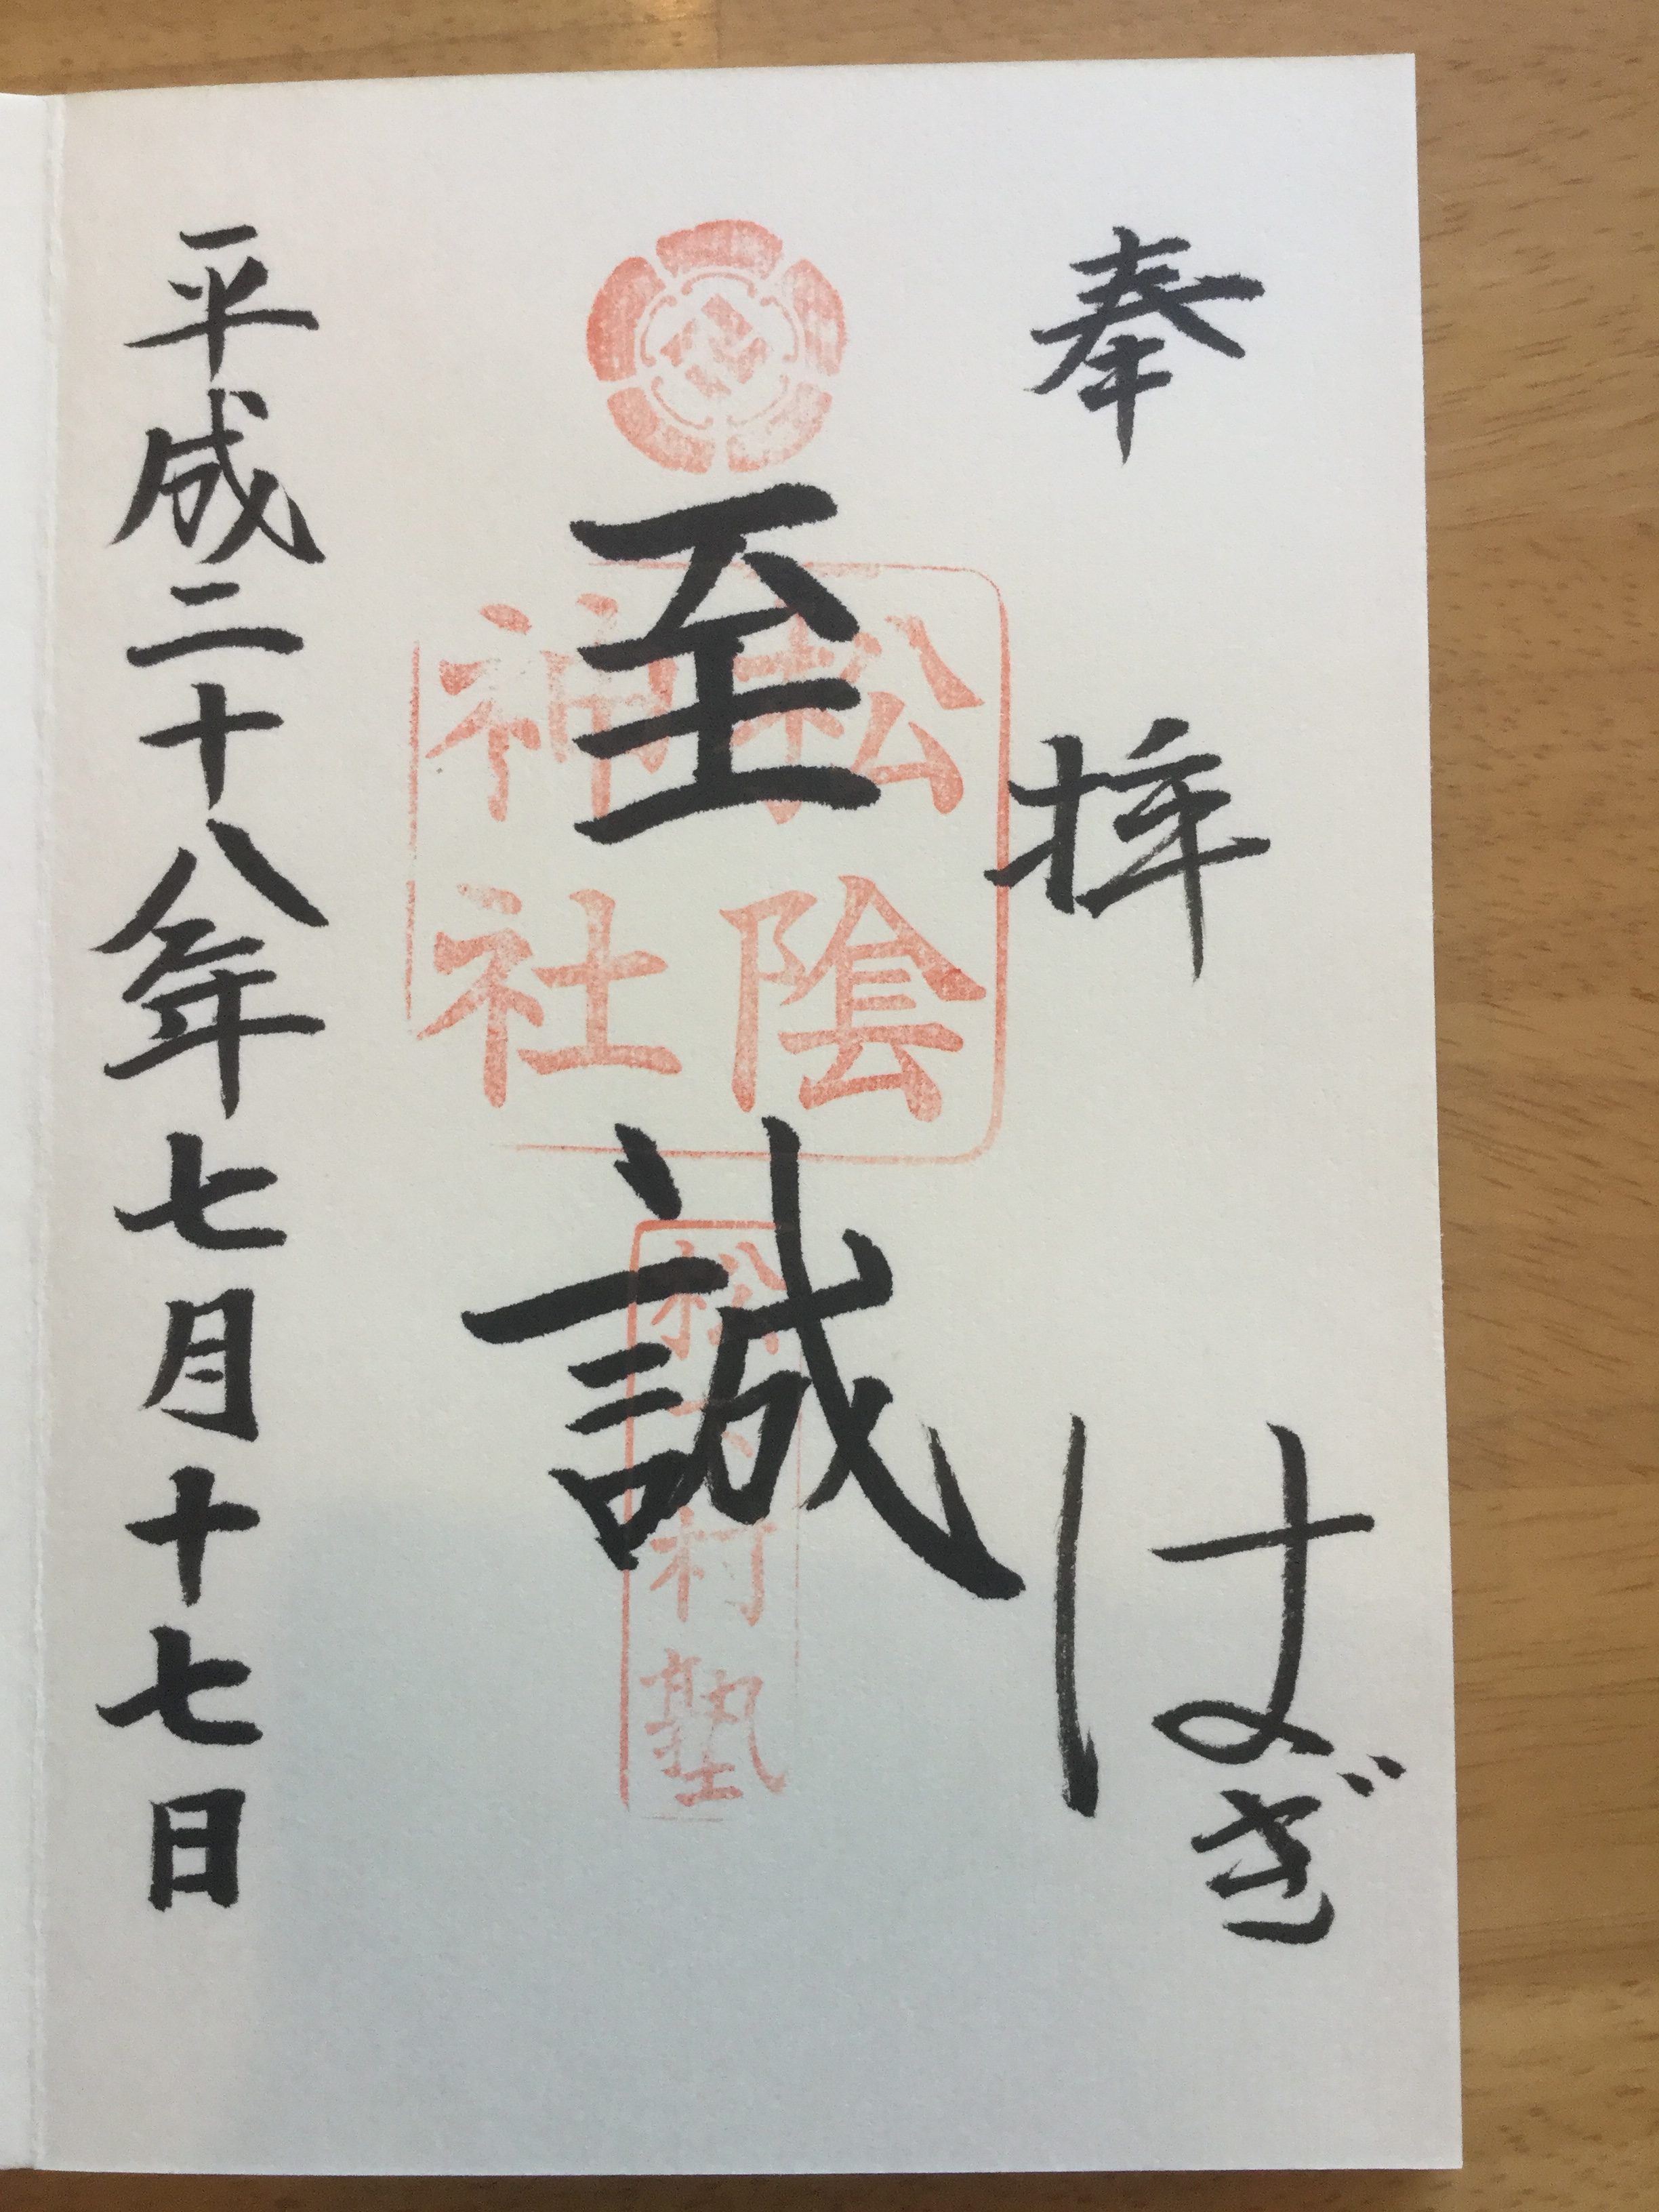 奉拝
はぎ
至誠
松陰
神社
松下村塾
平成二十八年七月十七日